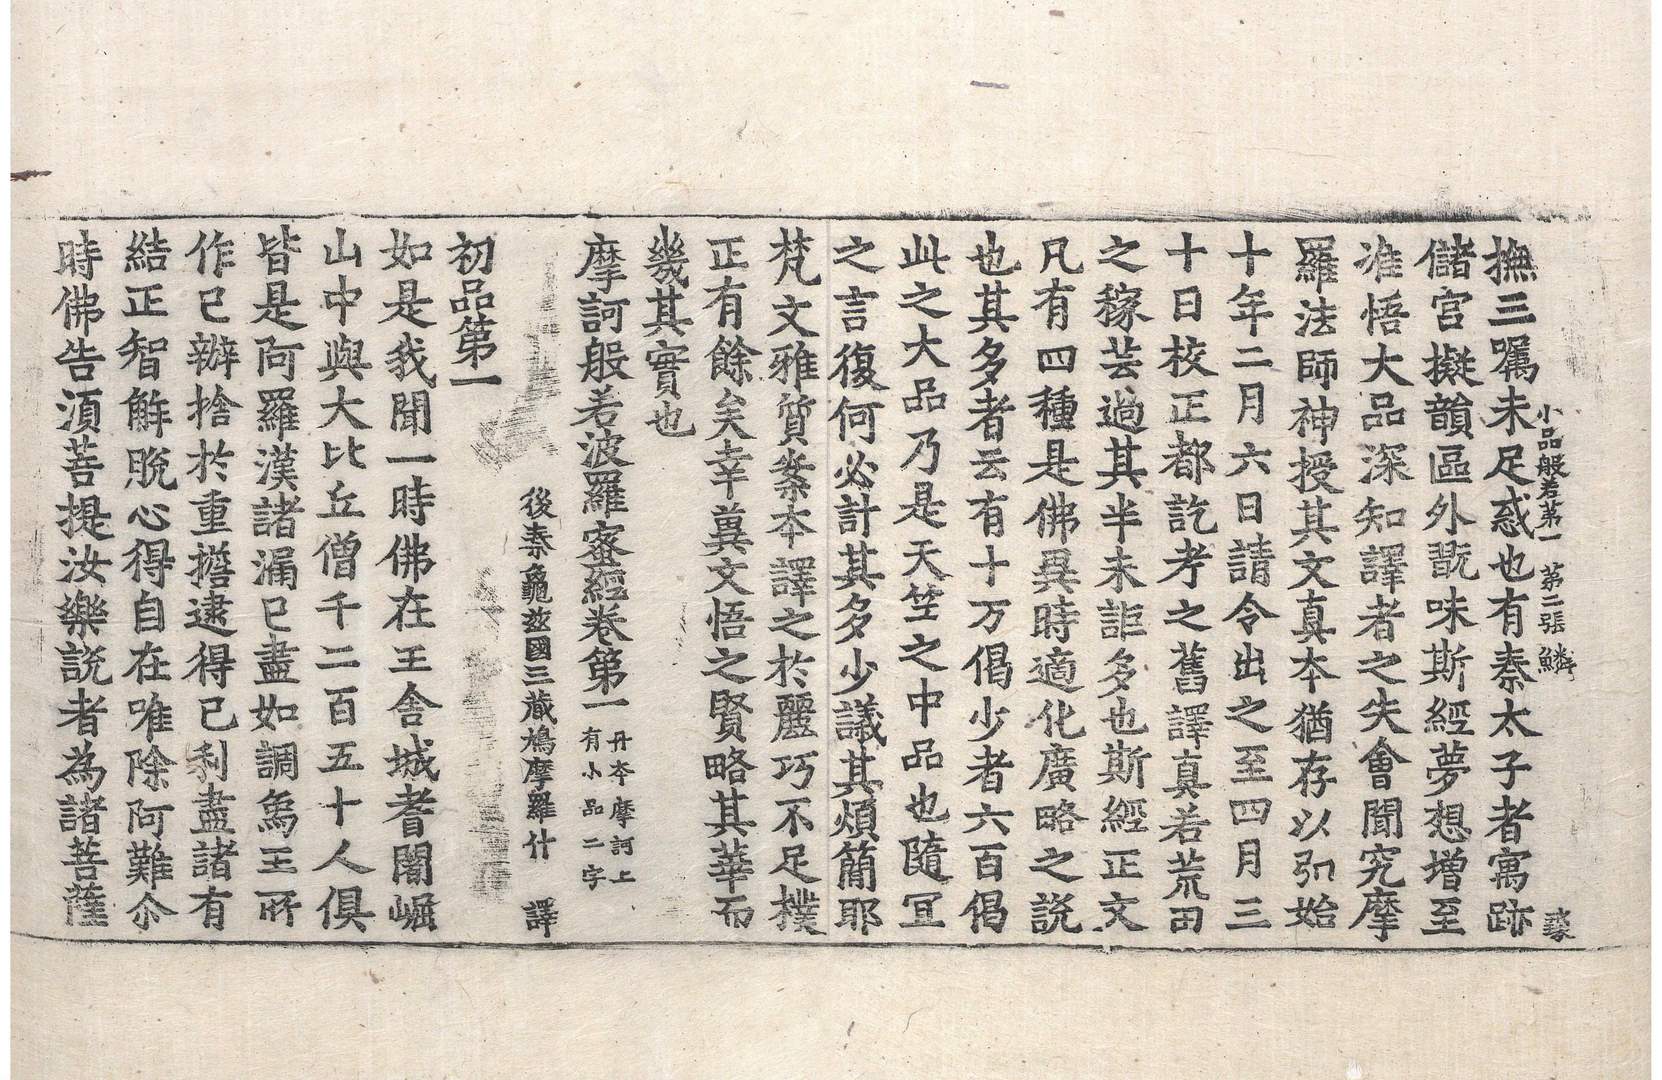 小品般若第一　第二張　鱗
撫三嘱未足惑也有秦太子者寓跡
儲宮擬韻區外翫味斯經夢想增至
准悟大品深知譯者之失會聞究摩
羅法師神授其文真本猶存以弘始
十年二月六日請令出之至四月三
十日校正都訖考之舊譯真若荒田
之稼芸過其半未詎多也斯經正文
凡有四種是佛異時適化廣略之說
也其多者云有十万偈少者六百偈
此之大品乃是天竺之中品也隨冝
之言復何必計其多少議其煩簡耶
梵文雅質案本譯之於麗巧不足樸
正有餘矣幸冀文悟之賢略其華而
幾其實也
摩訶般若波羅蜜經卷第一 丹本摩訶上有小品二字
後秦龜玆國三藏鳩摩羅什　譯
初品第一
如是我聞一時佛在王舍城耆闍崛
山中與大比丘僧千二百五十人俱
皆是阿羅漢諸漏已盡如調象王所
作已辦捨於重擔逮得己利盡諸有
結正智解脫心得自在唯除阿難尒
時佛告須菩提汝樂說者為諸菩薩